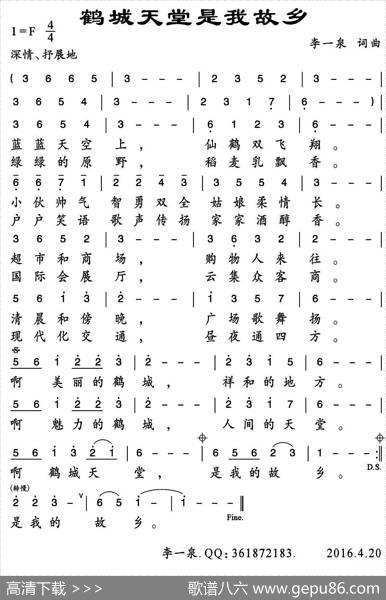 鹤城天堂是我故乡
1=F 4/4
李一泉 词曲
深情、抒展地
( 3 6 6 5 | 3 - - - | 3 6 5 2 | 3 - - - |
3 6 5 4 | 3 - - - | 2 3 1 7 | 6 - - - ) |
3 6 5 4 | 3 - - - | 6 1 2 3 | 6 - - - |
蓝蓝天空上， 仙鹤双飞翔。
绿绿的原野， 稻麦乳飘香。
6 6 7 1 | 2 2 1 2 | 3 4 3 6 5 4 | 3 - - - |
小伙帅气智勇双全姑娘柔情长。
户户笑语歌声传扬家家酒醇香。
3 6 5 2 | 3 - - - | 3 6 3 2 | 3 - - - |
超市和商场， 购物人来往。
国际会展厅， 云集众客商。
5 6 1 3 | 2 - - - | 2 3 1 7 | 6 - - - |
清晨和傍晚， 广场歌舞扬。
现代化交通， 昼夜通四方。
5 6 1 2 2 3 | 2 - - - | 2 3 1 5 | 6 - - - |
啊美丽的鹤城， 祥和的地方。
5 6 1 2 2 3 | 2 - - - | 2 3 1 7 | 6 - - - |
啊魅力的鹤城， 人间的天堂。
5 5 6 1 3 | 2 1 - - - | 5 6 5 6 2 3 | 1 - - - :|
D.S.
啊鹤城天堂， 是我的故乡。
(转慢)
2 2 3 - v | 6 5 1 - | 1 - - - ||
是我的故乡。
Fine.
李一泉.QQ:361872183. 2016.4.20
高清下载 >>>
歌谱八六 www.gepu86.com